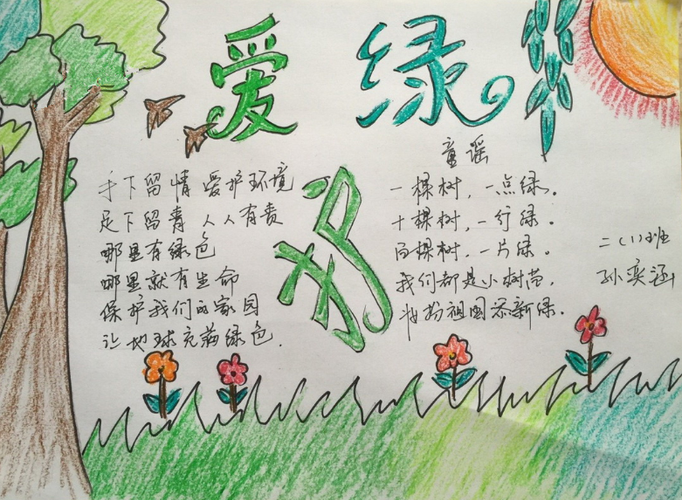 爱绿护
手下留情 爱护环境
足下留青 人人有责
哪里有绿色
哪里就有生命
保护我们的家园
让地球充满绿色.
童谣
一棵树,一点绿。
十棵树,一行绿。
百棵树,一片绿。
我们都是小树苗,
打扮祖国添新绿。
二(1)班
孙奕涵